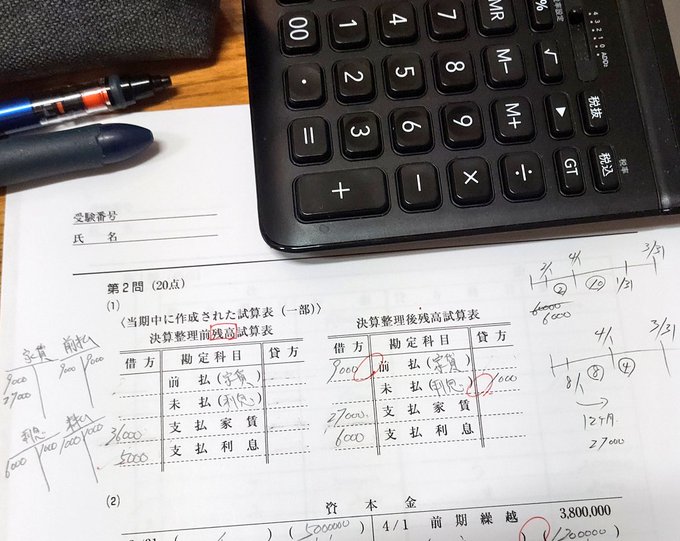 00 1 4 7 MR %
. 2 5 8 M- √
= 3 6 9 M+ ▶ 税抜
+ - × ÷ GT 税込
43210 ADD2
税率
受験番号
氏 名
第2問 (20点)
(1)
〈当期中に作成された試算表（一部）〉
決算整理前残高試算表
借 方 勘 定 科 目 貸 方
前 払(家賃)
未 払(利息)
36000 支 払 家 賃
5000 支 払 利 息
決算整理後残高試算表
借 方 勘 定 科 目 貸 方
9000 前 払(家賃)
未 払(利息) 1000
27000 支 払 家 賃
6000 支 払 利 息
家賃 前払
9000 9000 9000
27000
利息 未払
6000 1000 1000 1000
4/1 3/31
② ⑩ 1/31
6000
6000
4/1 3/31
8/1 ⑧ ④
12ヶ月
27000
(2)
資 本 金
(500000) 4/1 前 期 繰 越 3,800,000